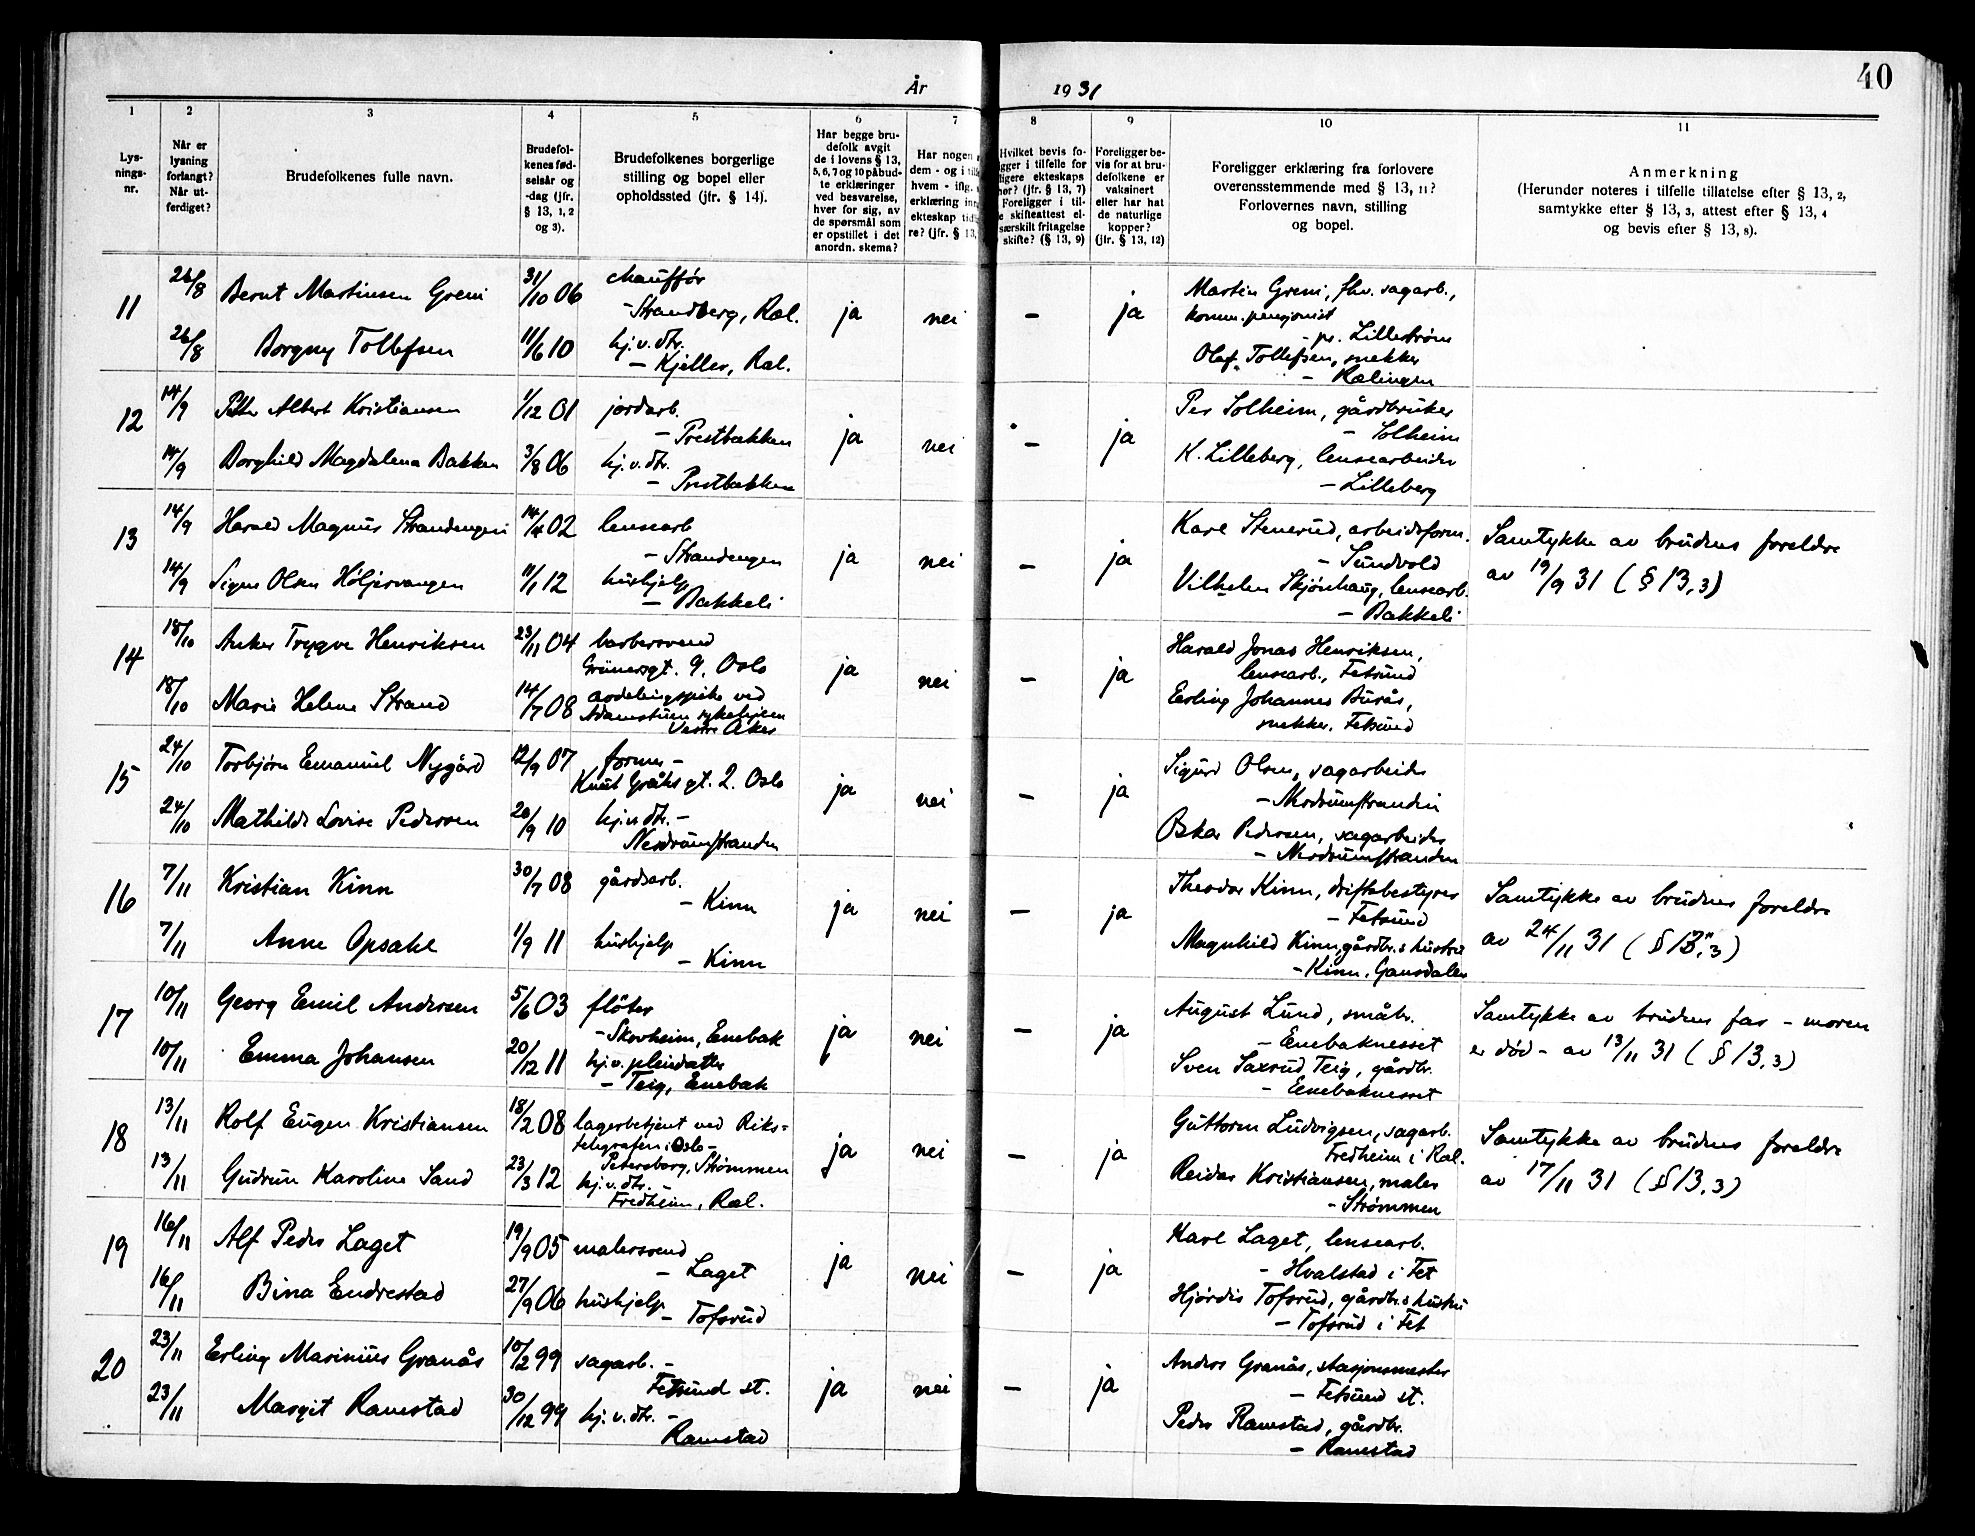 År 1931
40
1 2 3 4 5 6 7 8 9 10 11
Lys-
nings-
nr.
Når er
lysning
forlangt?
Når ut-
ferdiget?
Brudefolkenes fulle navn.
Brudefol-
kenes fød-
selsår og
-dag (jfr.
§ 13, 1, 2
og 3).
Brudefolkenes borgerlige
stilling og bopel eller
opholdssted (jfr. § 14).
Har begge bru-
defolk avgit
de i lovens § 13,
5, 6, 7 og 10 påbud-
te erklæringer
ved besvarelse,
hver for sig, av
de spørsmål som
er opstillet i det
anordn. skema?
Har nogen
dem - og i
hvem - iflg.
erklæring inn
ekteskap tid
re? (jfr. § 13,
Hvilket bevis fo-
gger i tilfelle for
ligere ekteskaps
hør? (jfr. § 13, 7)
Foreligger i til-
e skifteattest el-
særskilt fritagelse
skifte? (§ 13, 9)
Foreligger be-
vis for at bru-
defolkene er
vaksinert
eller har hat
de naturlige
kopper?
(jfr. § 13, 12)
Foreligger erklæring fra forlovere
overensstemmende med § 13, 11?
Forlovernes navn, stilling
og bopel.
Anmerkning
(Herunder noteres i tilfelle tillatelse efter § 13, 2,
samtykke efter § 13, 3, attest efter § 13, 4
og bevis efter § 13, 8).
11
26/8 Bernt Martinsen Greni 31/10 06 chauffør
- Strandberg, Ral.
26/8 Borgny Tollefsen 11/6 10 hj.v.dtr.
- Kjeller, Ral.
ja nei - ja
Martin Greni, fhv. sagarb.,
komm. pensjonist
- pr. Lillestrøm
Olaf Tollefsen, snekker
- Rælingen
12
14/9 Peder Albert Kristiansen 1/12 01 jordarb.
- Prestbakken
14/9 Borghild Magdalena Bakken 3/8 06 hj.v.dtr.
- Prestbakken
ja nei - ja
Per Solheim, gårdbruker
- Solheim
K. Lilleberg, lensearbeider
- Lilleberg
13
14/9 Harald Magnus Strandengen 14/4 02 lensearb
- Strandengen
14/9 Signe Olsen Høljersvangen 11/1 12 hushjelp
- Bakkeli
ja nei - ja
Karl Stenerud, arbeidsform.
- Sundvold
Vilhelm Skjønhaug, lensearb.
- Bakkeli
Samtykke av brudens foreldre
av 19/9 31 (§ 13, 3)
14
18/10 Anker Trygve Henriksen 23/11 04 barbersvend
Grünersgt. 9, Oslo
18/10 Marie Helene Strand 14/7 08 avdelingspike ved
Adamstuen sykehjem
Vestre Aker
ja nei - ja
Harald Jonas Henriksen,
lensearb., Fetsund
Erling Johannes Burås,
snekker, Fetsund
15
24/10 Torbjørn Emanuel Nygård 12/9 07 former -
Knut Gråhs gt. 2. Oslo
24/10 Mathilde Lovise Pedersen 20/9 10 hj.v.dtr. -
Nerdrumstranden
ja nei - ja
Sigurd Olsen, sagarbeider
- Nerdrumstranden
Oskar Pedersen, sagarbeider
- Nerdrumstranden
16
7/11 Kristian Kinn 30/7 08 gårdsarb.
- Kinn
7/11 Anne Opsahl 1/9 11 hushjelp
- Kinn
ja nei - ja
Theodor Kinn, driftsbestyrer
- Fetsund
Magnhild Kinn, gårdbr.s hustru
- Kinn, Gansdalen
Samtykke av brudens foreldre
av 24/11 31 (§ 13, 3)
17
10/11 Georg Emil Andersen 5/6 03 fløter
- Skovheim, Enebak
10/11 Emma Johansen 20/12 11 hj.v. pleiedatter
- Teig, Enebak
ja nei - ja
August Lund, småbr.
- Enebaknesset
Sven Saxrud Teig, gårdbr.
- Enebaknesset
Samtykke av brudens far - moren
er død - av 13/11 31 (§ 13, 3)
18
13/11 Rolf Eugen Kristiansen 18/2 08 lagerbetjent ved Riks-
telegrafen i Oslo -
Petersborg, Strømmen
13/11 Gudrun Karoline Sand 23/3 12 hj.v.dtr. -
Fredheim, Ral.
ja nei - ja
Guttorm Ludvigsen, sagarb.
Fredheim i Ral.
Reidar Kristiansen, maler
- Strømmen
Samtykke av brudens foreldre
av 17/11 31 (§ 13, 3)
19
16/11 Alf Peder Laget 19/9 05 malersvend
- Laget
16/11 Bina Endrestad 27/9 06 hushjelp
- Tofsrud
ja nei - ja
Karl Laget, lensearb.
- Hvalstad i Fet
Hjørdis Tofsrud, gårdbr.s hustru
- Tofsrud i Fet
20
23/11 Erling Marinius Granås 10/2 99 sagarb. -
Fetsund st.
23/11 Margit Ramstad 30/12 99 hj.v.dtr. -
Ramstad
ja nei - ja
Anders Granås, stasjonsmester
- Fetsund st.
Peder Ramstad, gårdbr.
- Ramstad